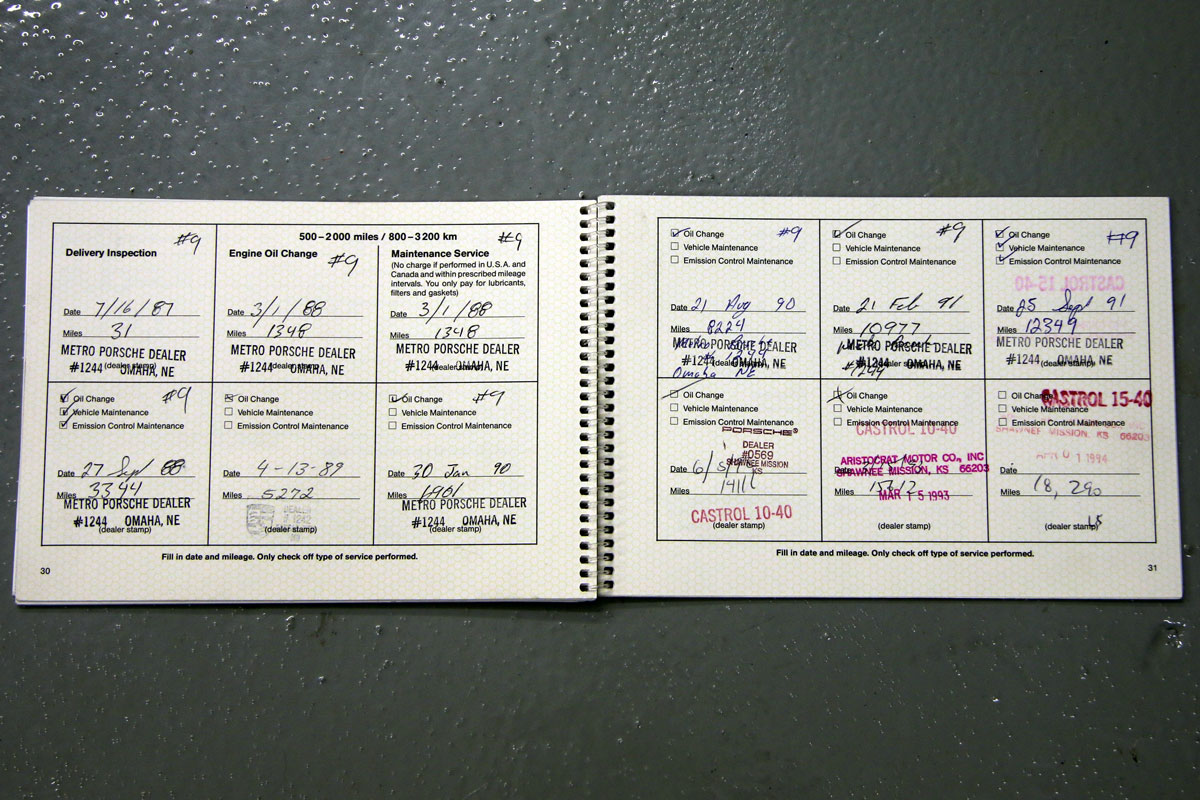 500–2000 miles / 800–3200 km
Delivery Inspection #9
Date 7/16/87
Miles 31
METRO PORSCHE DEALER
(dealer stamp)
#1244 OMAHA, NE
Engine Oil Change #9
Date 3/1/88
Miles 1348
METRO PORSCHE DEALER
(dealer stamp)
#1244 OMAHA, NE
Maintenance Service #9
(No charge if performed in U.S.A. and
Canada and within prescribed mileage
intervals. You only pay for lubricants,
filters and gaskets)
Date 3/1/88
Miles 1348
METRO PORSCHE DEALER
(dealer stamp)
#1244 OMAHA, NE
Oil Change #9
Vehicle Maintenance
Emission Control Maintenance
Date 27 Sept 88
Miles 3344
METRO PORSCHE DEALER
#1244 OMAHA, NE
(dealer stamp)
Oil Change
Vehicle Maintenance
Emission Control Maintenance
Date 4-13-89
Miles 5272
DEALER
(dealer stamp)
Oil Change #9
Vehicle Maintenance
Emission Control Maintenance
Date 30 Jan 90
Miles
METRO PORSCHE DEALER
#1244 OMAHA, NE
(dealer stamp)
Fill in date and mileage. Only check off type of service performed.
30
Oil Change #9
Vehicle Maintenance
Emission Control Maintenance
Date 21 Aug 90
Miles 8224
METRO PORSCHE DEALER
#1244 OMAHA, NE
(dealer stamp)
Omaha NE
Oil Change #9
Vehicle Maintenance
Emission Control Maintenance
Date 21 Feb 91
Miles 10977
METRO PORSCHE DEALER
#1244 OMAHA, NE
(dealer stamp)
#1244
Oil Change #9
Vehicle Maintenance
Emission Control Maintenance
CASTROL 15-40
Date 25 Sept 91
Miles 12349
METRO PORSCHE DEALER
#1244 OMAHA, NE
(dealer stamp)
Oil Change
Vehicle Maintenance
Emission Control Maintenance
PORSCHE®
DEALER
#0569
SHAWNEE MISSION
KS
Date 6/5/
Miles
CASTROL 10-40
(dealer stamp)
Oil Change
Vehicle Maintenance
Emission Control Maintenance
CASTROL 10-40
ARISTOCRAT MOTOR CO., INC
SHAWNEE MISSION, KS 66203
Date
Miles
MAR 15 1993
(dealer stamp)
Oil Change
CASTROL 15-40
Vehicle Maintenance
Emission Control Maintenance
SHAWNEE MISSION, KS 66203
APR 01 1994
Date
Miles 18,290
(dealer stamp)
Fill in date and mileage. Only check off type of service performed.
31